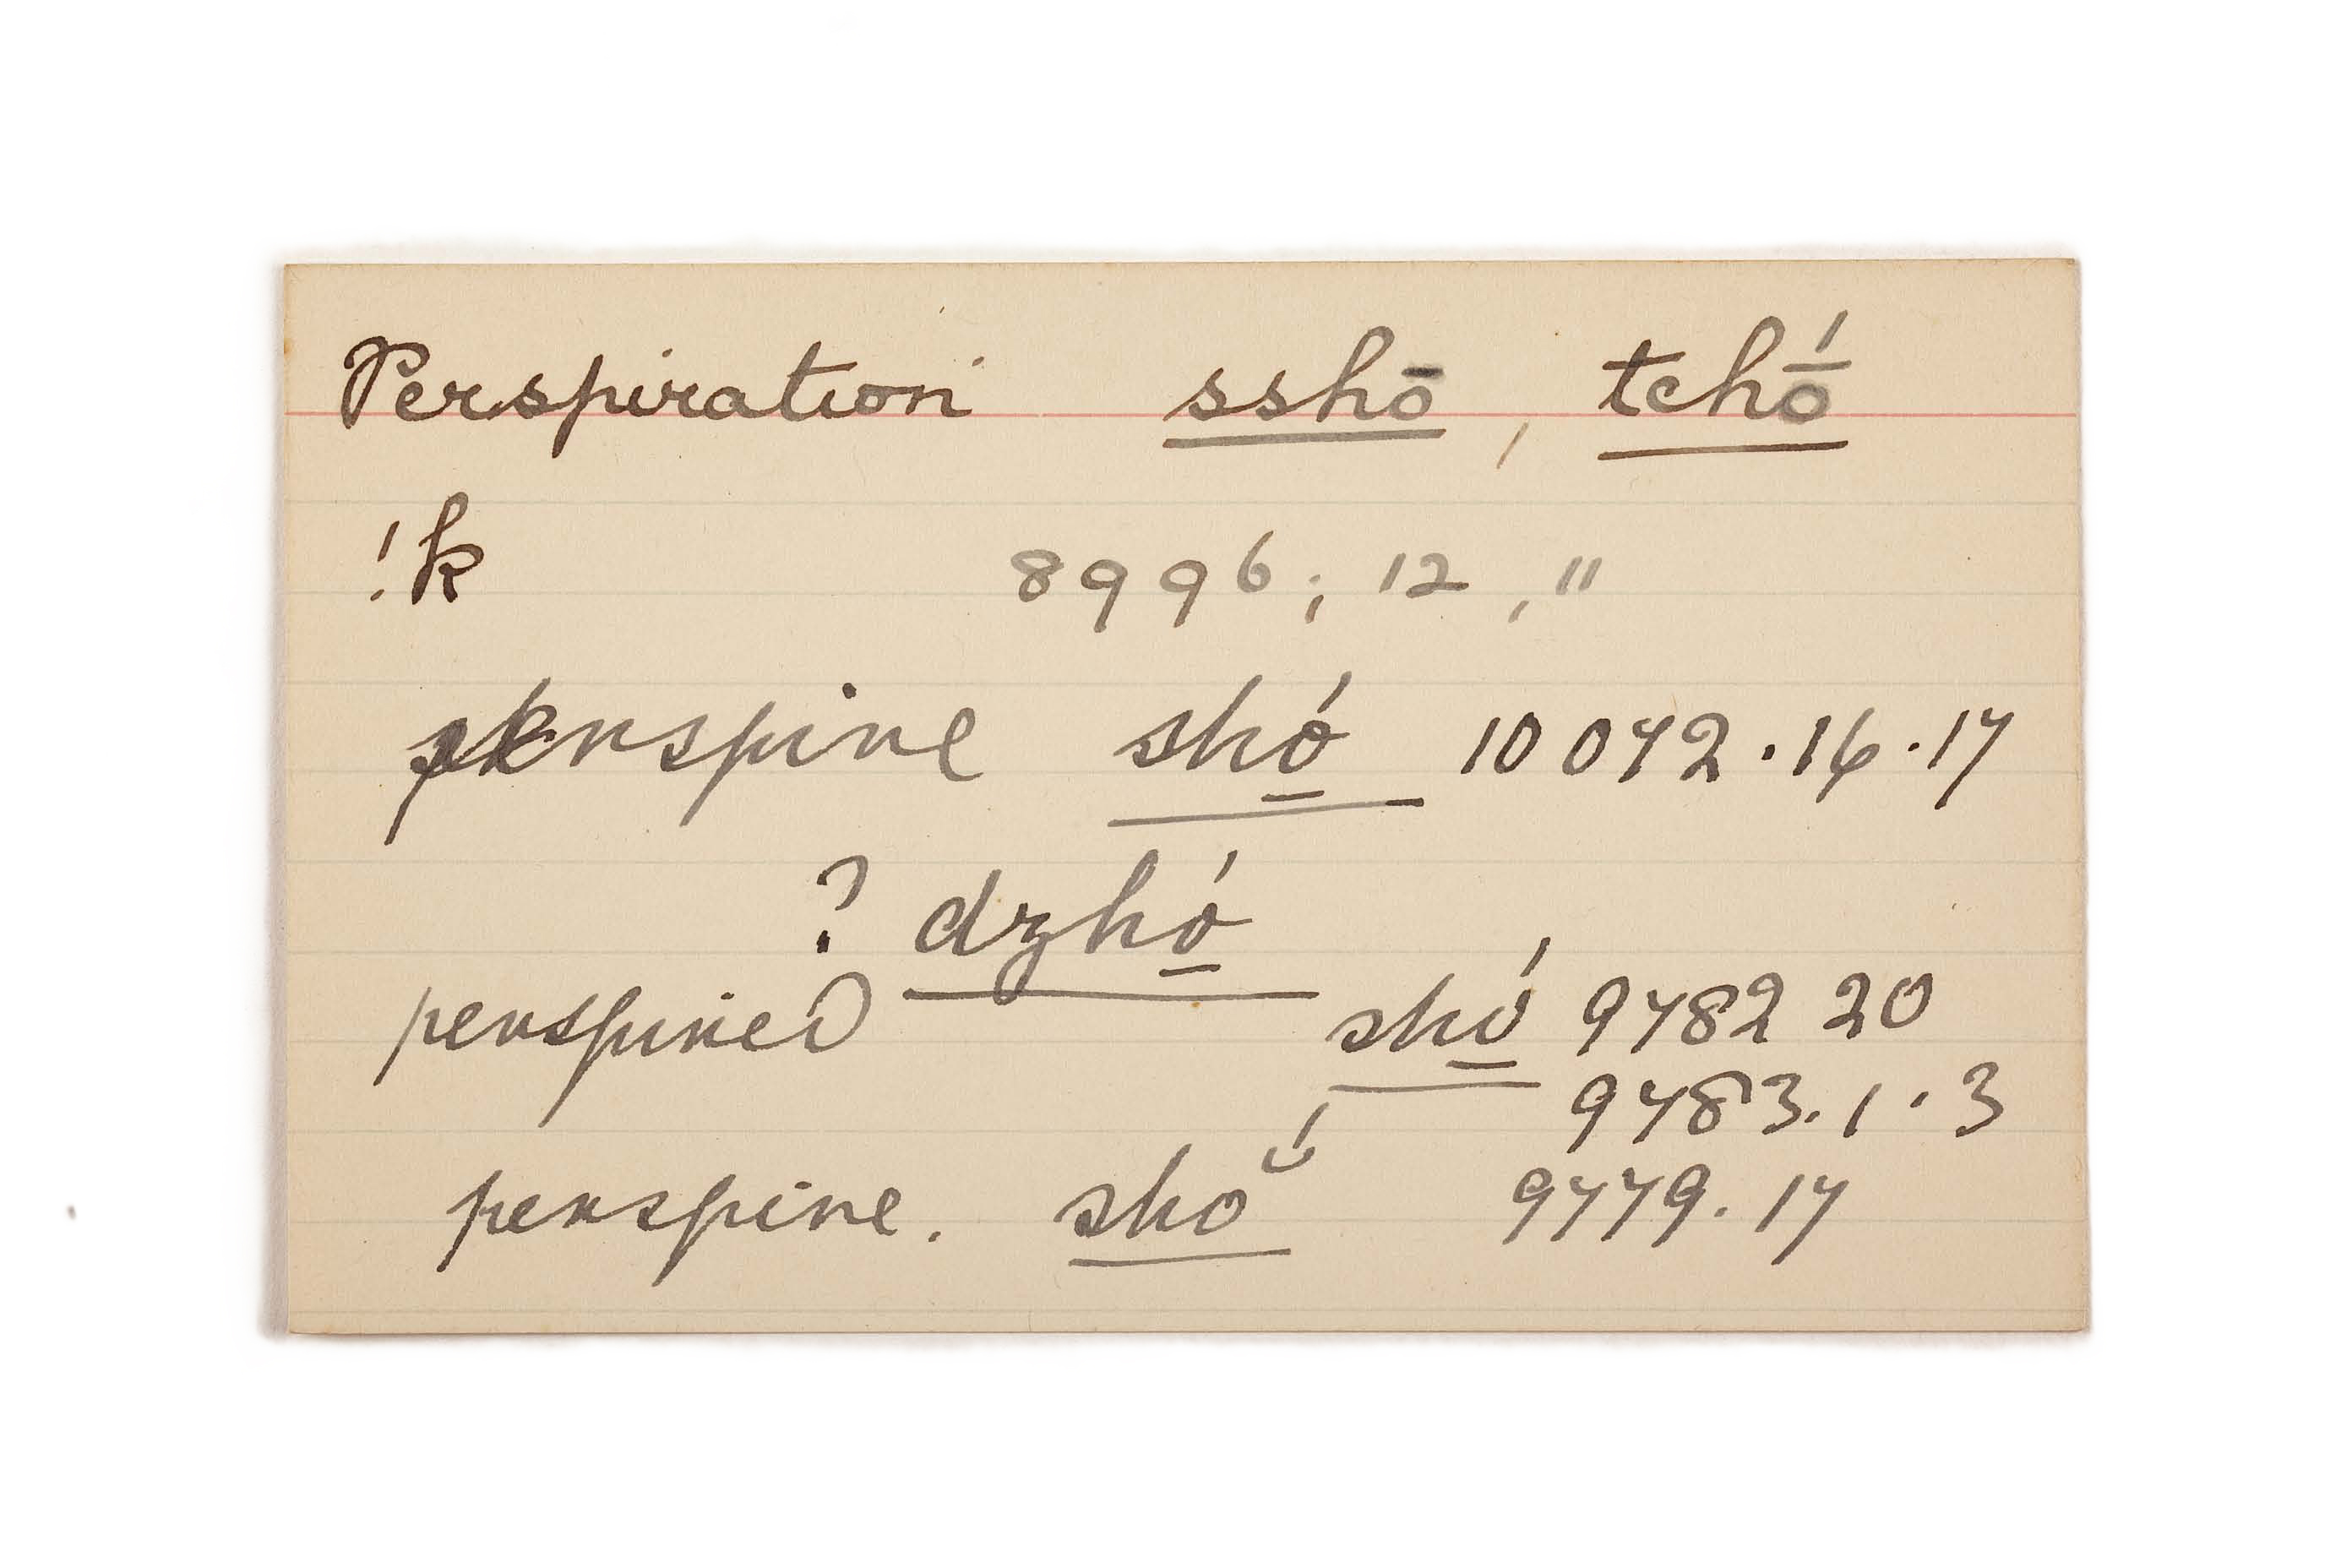 Perspiration sshō, tchṓ
!k 8996; 12, "
perspire shó̱ 10072.16.17
? dzhó̱
perspired shó̱ 9782 20
9783.1.3
perspire. shŏ́ 9779.17